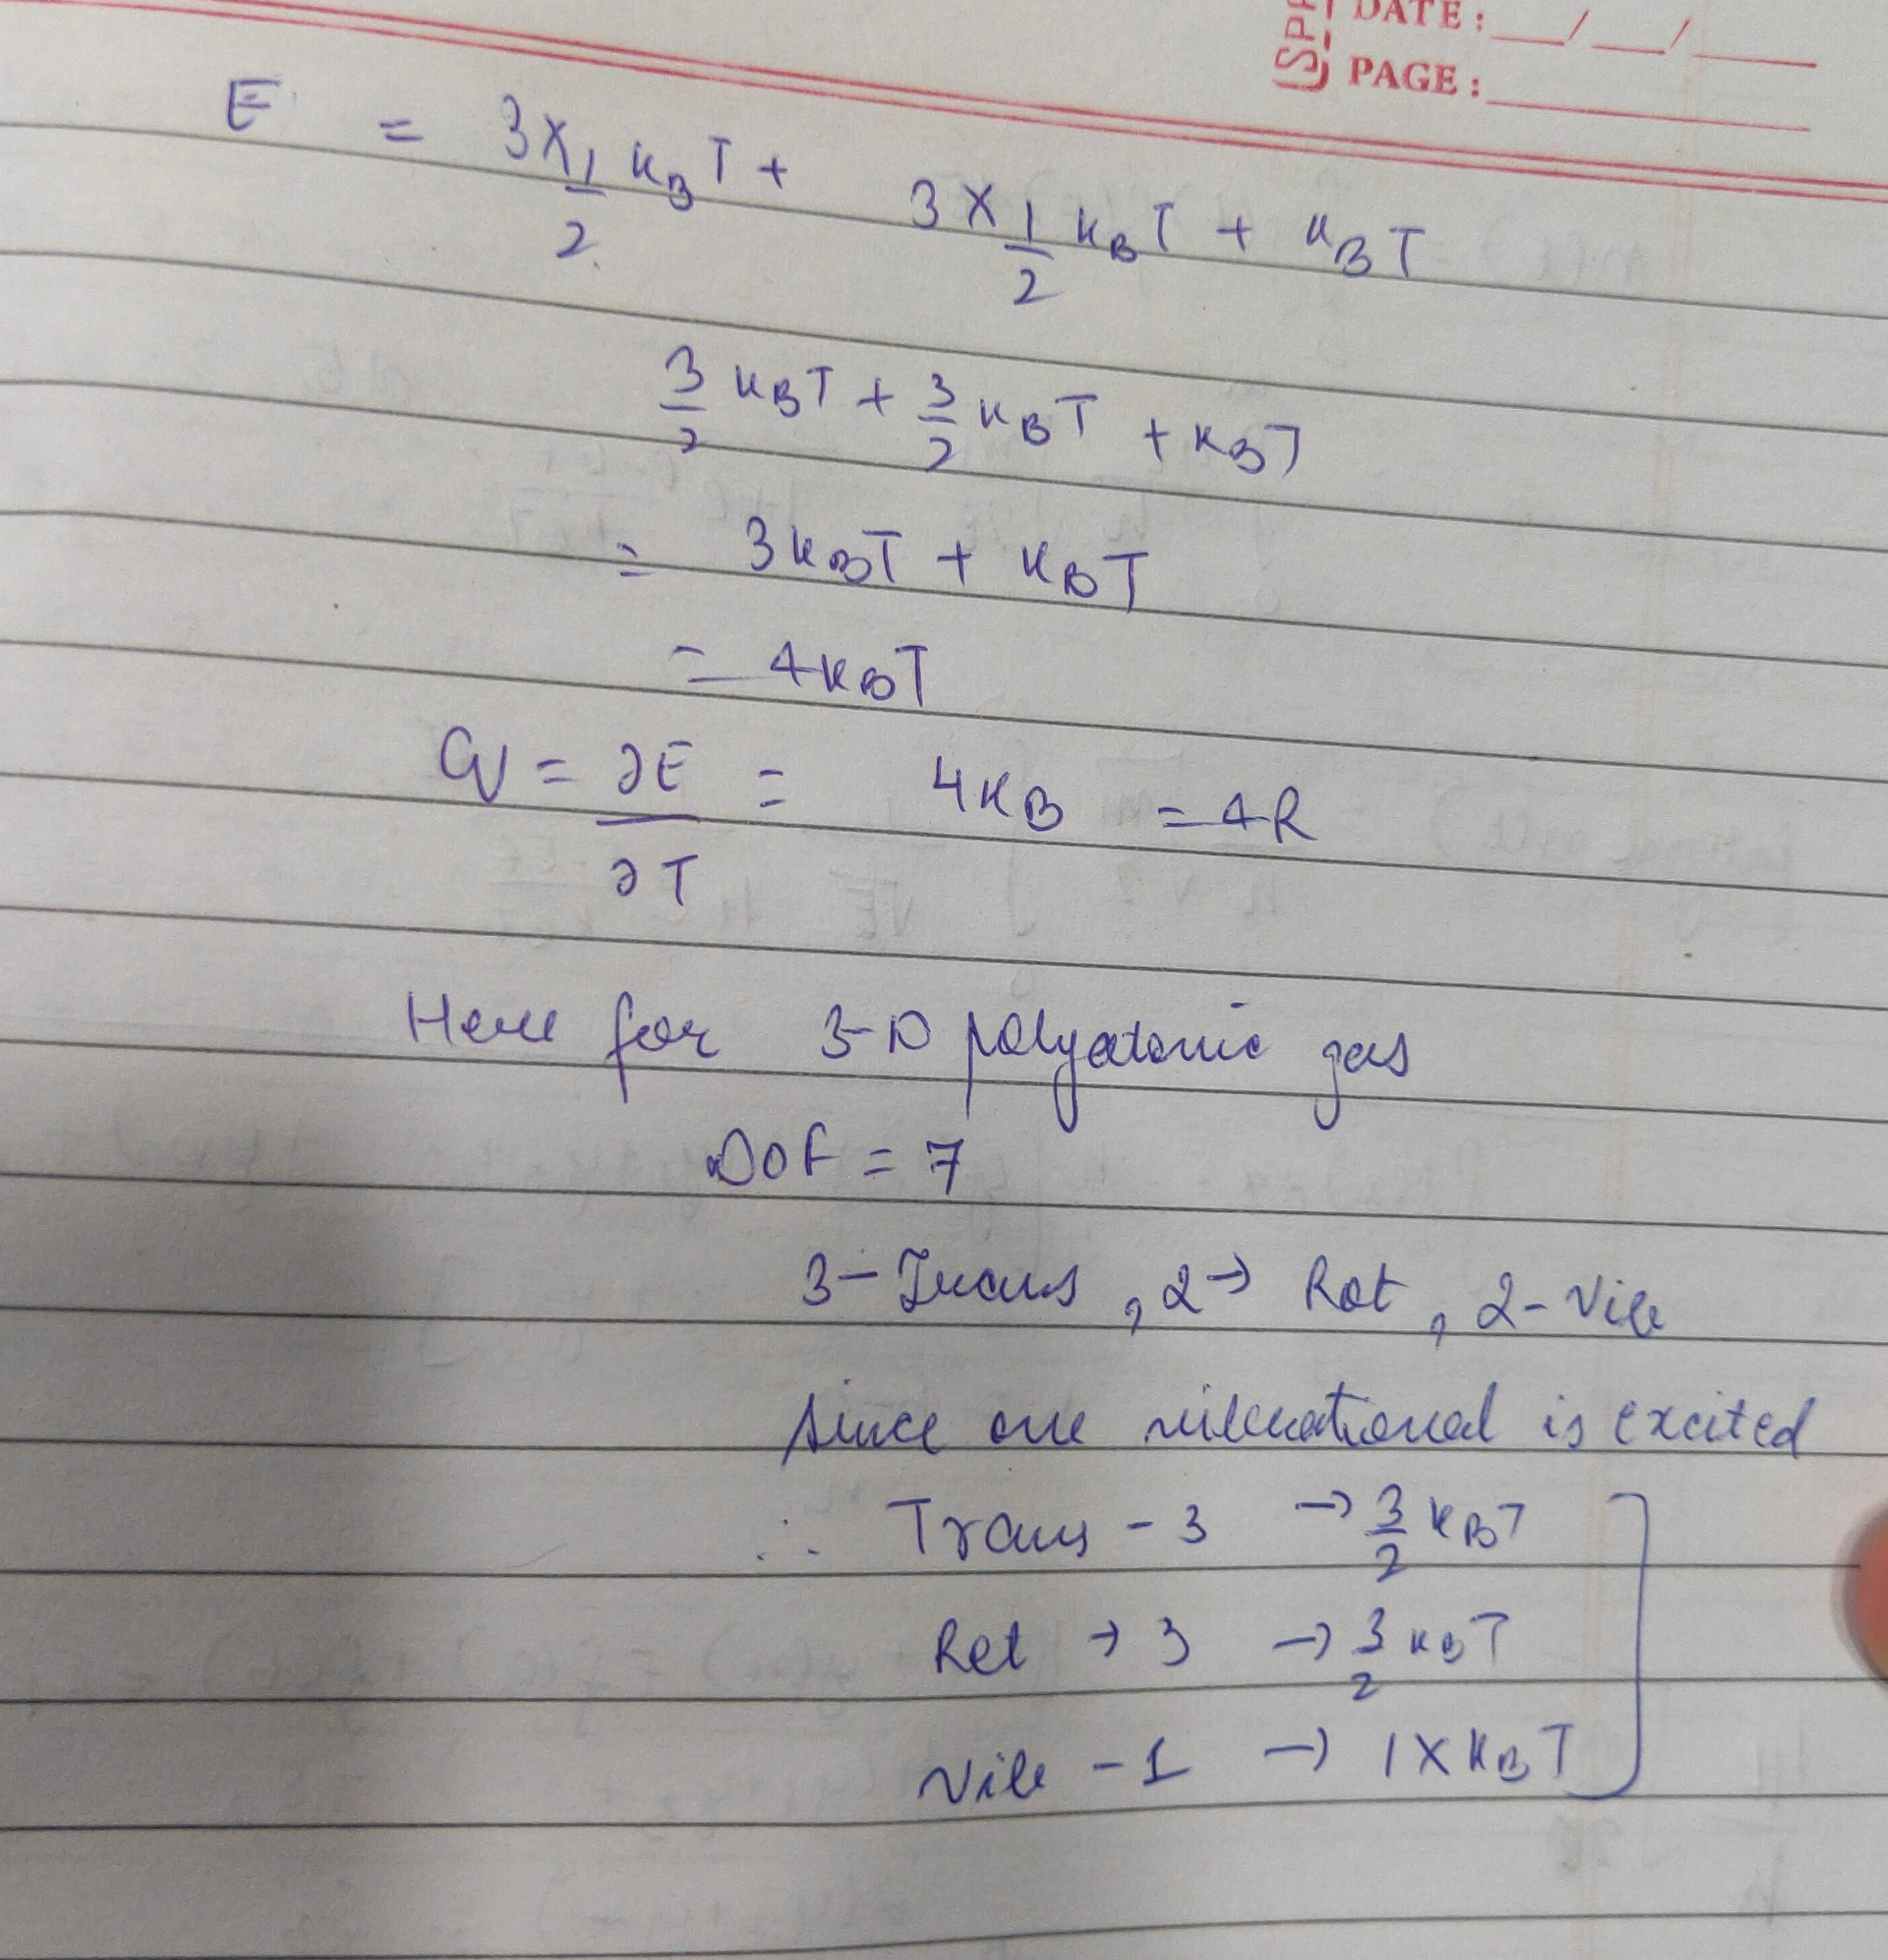 DATE: __/__/__
PAGE:
E = 3×1/2 k_BT + 3×1/2 k_BT + k_BT
3/2 k_BT + 3/2 k_BT + k_BT
= 3k_BT + k_BT
= 4k_BT
Cv = ∂E/∂T = 4k_B = 4R
Here for 3-D polyatomic gas
DOF = 7
3-Trans, 2→ Rot, 2-Vib
since one vibrational is excited
∴ Trans - 3 → 3/2 k_BT
Rot → 3 → 3/2 k_BT
Vib - 1 → 1×k_BT